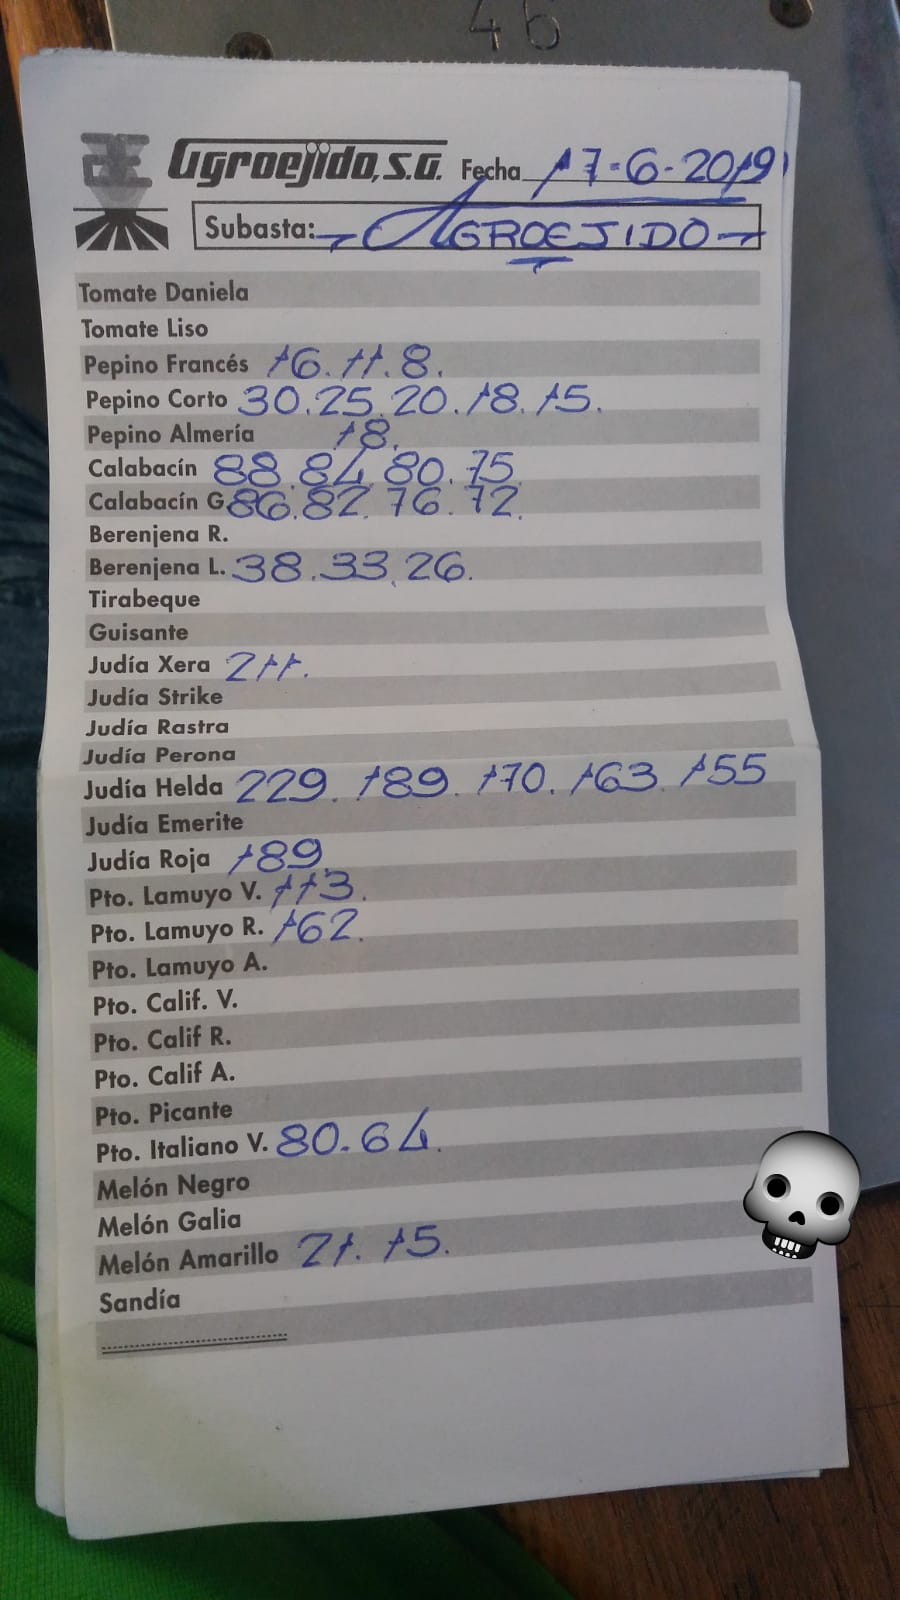 46
Agroejido, S.A. Fecha 17-6-2019
Subasta: AGROEJIDO
Tomate Daniela
Tomate Liso
Pepino Francés 16. 11. 8.
Pepino Corto 30. 25. 20. 18. 15.
Pepino Almería 18.
Calabacín 88. 84. 80. 75.
Calabacín G. 86. 82. 76. 72.
Berenjena R.
Berenjena L. 38. 33. 26.
Tirabeque
Guisante
Judía Xera 211.
Judía Strike
Judía Rastra
Judía Perona
Judía Helda 229. 189. 170. 163. 155
Judía Emerite
Judía Roja 189.
Pto. Lamuyo V. 113.
Pto. Lamuyo R. 162.
Pto. Lamuyo A.
Pto. Calif. V.
Pto. Calif R.
Pto. Calif A.
Pto. Picante
Pto. Italiano V. 80. 64.
Melón Negro
Melón Galia
Melón Amarillo 21. 15.
Sandía